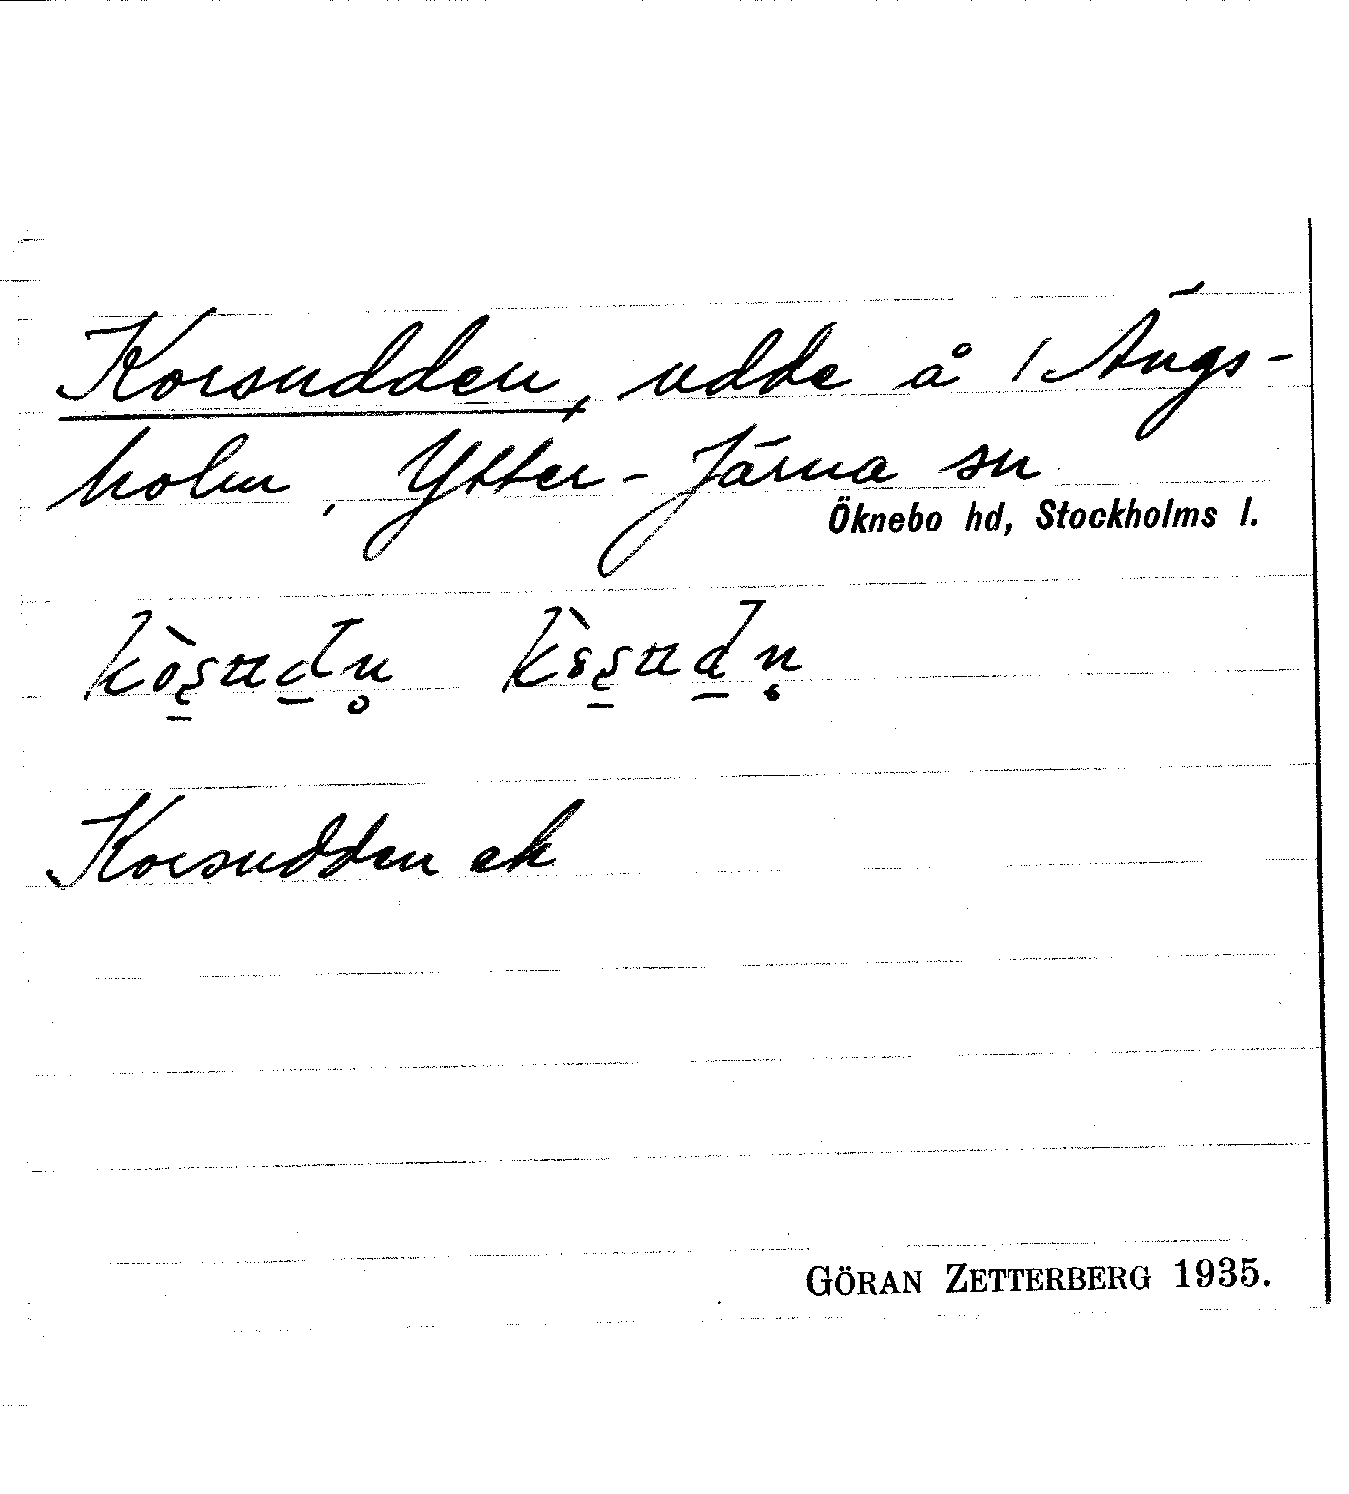 Korsudden, udde å / Ängs-
holm, Ytter-Järna sn
Öknebo hd, Stockholms l.
Korsudden ek
GÖRAN ZETTERBERG 1935.